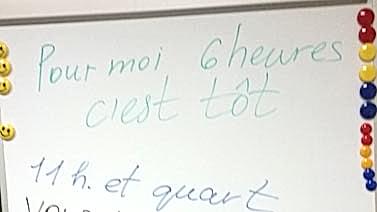 Pour moi 6heures
c'est tôt
11h. et quart